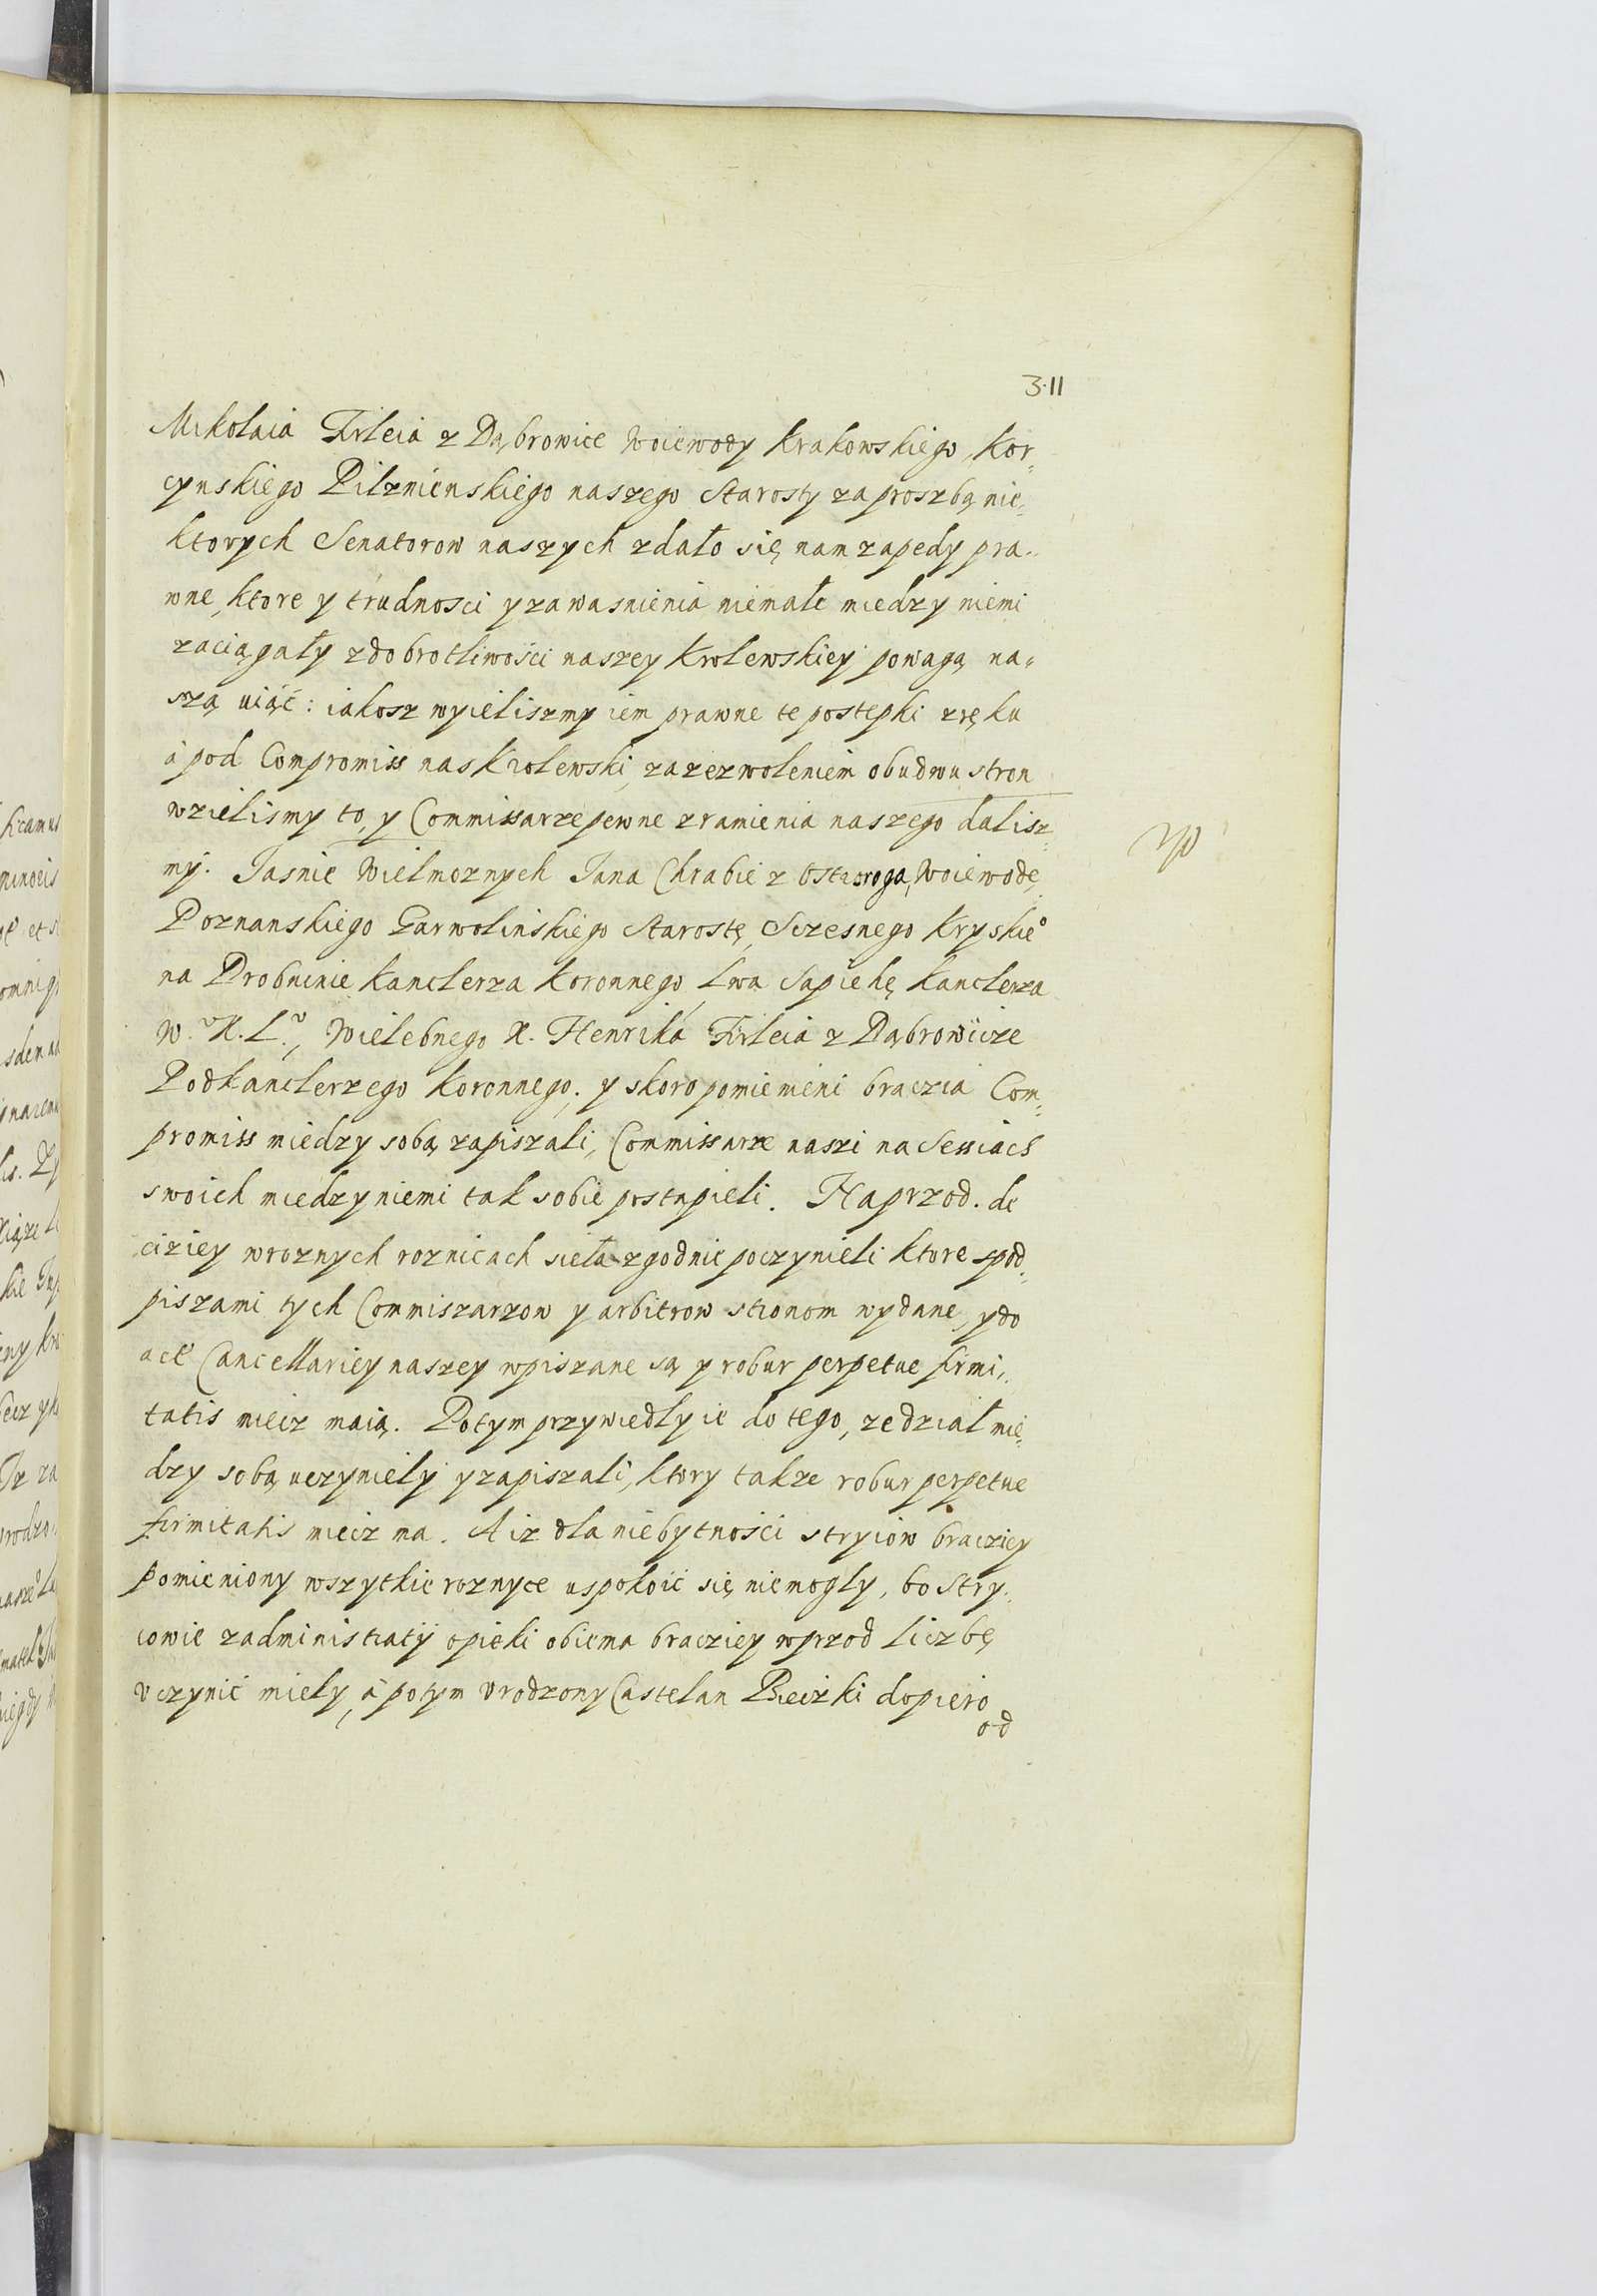 3·11
Mikolaia Firleia z Dąbrowice Woiewody Krakowskiego, Kor¬
cynskiego Pilznienskiego naszego Starosty za proszbą nie¬
ktorych Senatorow naszych zdało się nam zapedy pra¬
wne, ktore y trudnosci y zawasnienia niemałe miedzy niemi
zaciągały z dobrotliwości naszey Krolewskiey powagą na¬
szą uiąć: iakosz wyieliszmy iem prawne te postepki z ręku
à pod Compromiss nas Krolewski, za zezwoleniem obudwu stron
wzielismy to, y Commissarze pewne z ramienia naszego dalisz¬
my. Jasnie Wielmoznych Jana Chrabie z Ostroroga, Woiewode
Poznanskiego Garwolinskiego Starostę, Sczesnego Kryskiᵒ
na Drobninie Kanclerza Koronnego, Lwa Sapiehę Kanclerza
W. X. L., Wielebnego X. Henrika Firleia z Dąbrowicze
Podkanclerzego Koronnego; y skoro pomienieni braczia Com¬
promiss miedzy sobą zapiszali, Commissarze naszi na Sessiach
swoich miedzy niemi tak sobie postąpieli. Naprzod. de
ciziey w roznych roznicach sieła zgodnie poczynieli ktore s pod¬
piszami tych Commiszarzow y arbitrow stronom wydane, y do
act Cancellariey naszey wpiszane są y robur perpetue firmi¬
tatis miecz maią. Potym przywiedly ie do tego, ze dział mie¬
dzy sobą uczyniely y zapiszali, ktory takze robur perpetue
firmitatis miecz ma. A iz dla niebytności stryiów bracziey
pomieniony wszytkie roznyce uspokoić się niemogly, bo Stry¬
iowie z administratij opieki obiema bracziey wprzod liczbę
vczynić miely, à potym vrodzony Castelan Bieczki dopiero
od